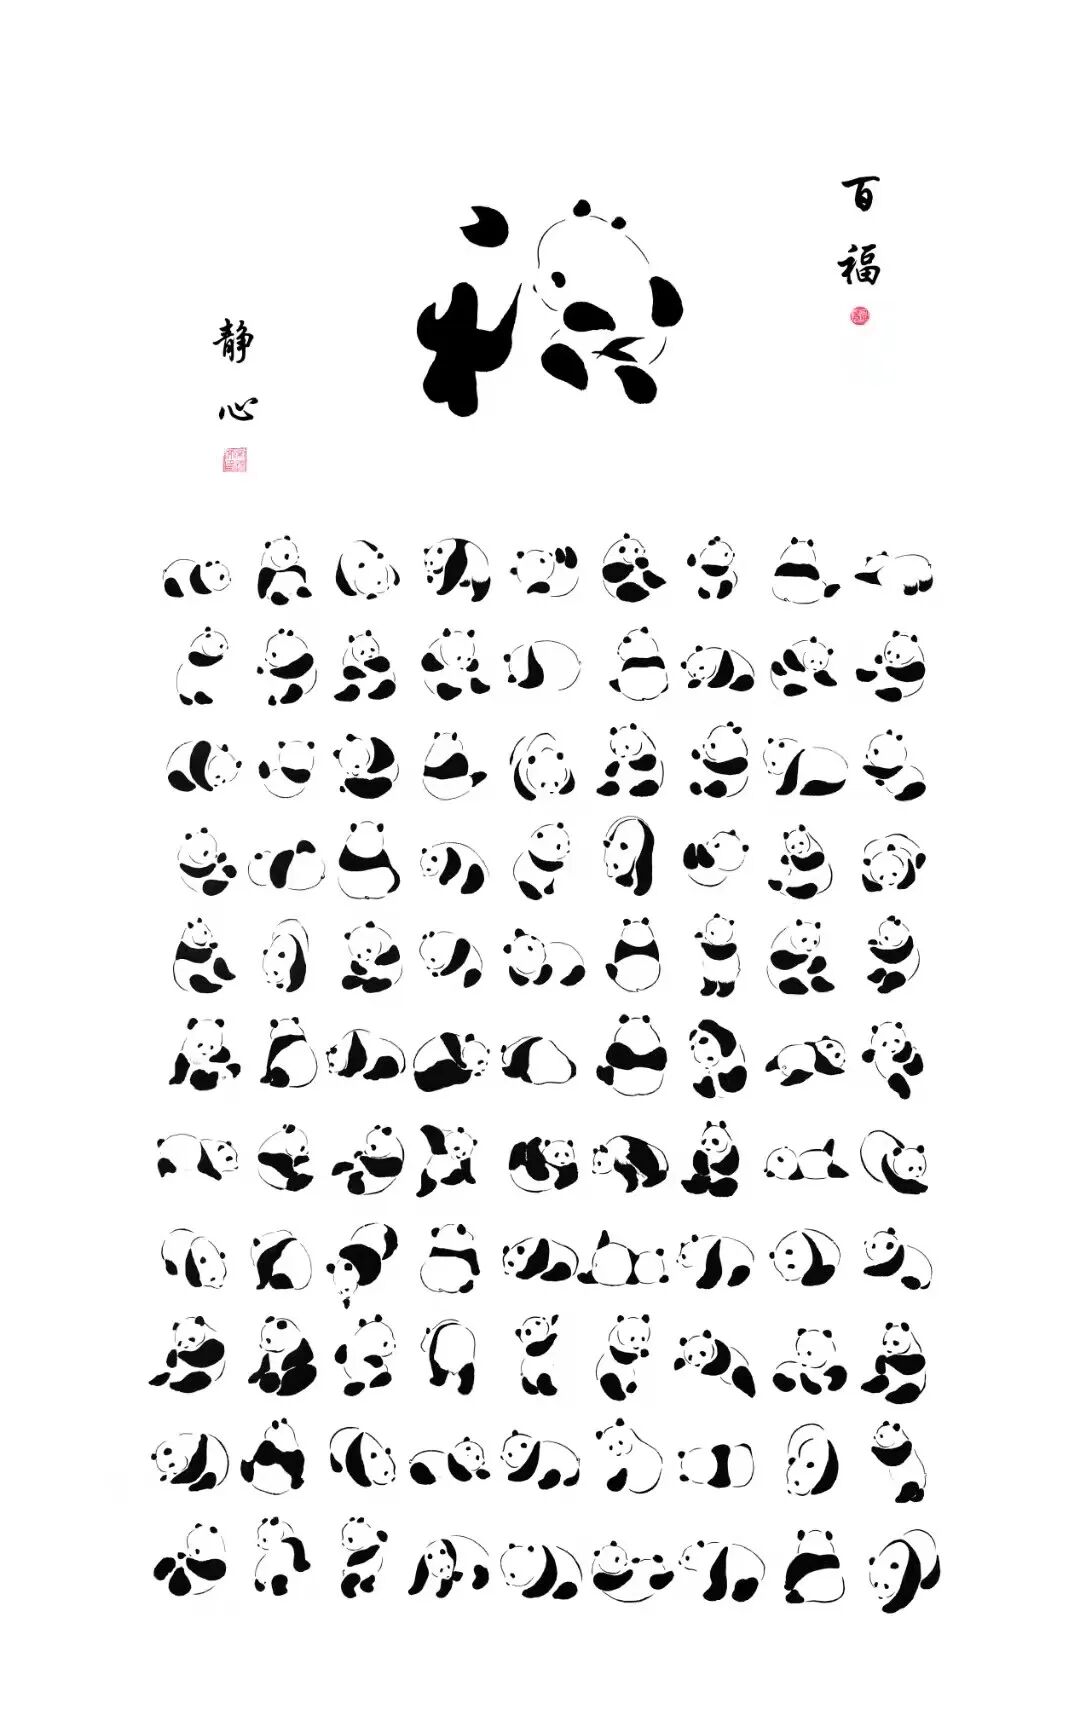 百福
静心